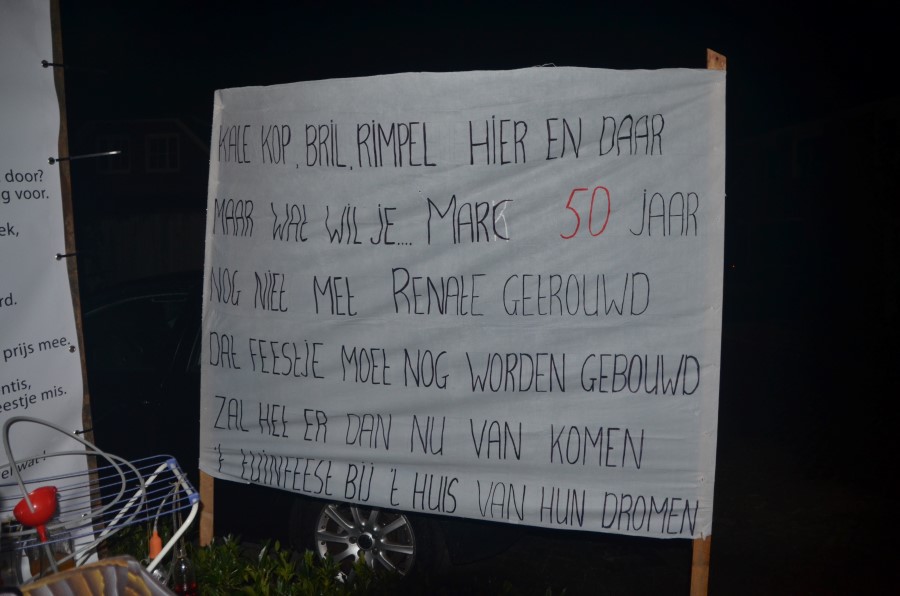 door?
g voor.
ek,
rd.
prijs mee.
ntis,
eestje mis.
KALE KOP, BRIL, RIMPEL HIER EN DAAR
MAAR WAT WIL JE.... MARC 50 JAAR
NOG NIET MET RENATE GETROUWD
DAT FEESTJE MOET NOG WORDEN GEBOUWD
ZAL HET ER DAN NU VAN KOMEN
't TUINFEEST BIJ 't HUIS VAN HUN DROMEN